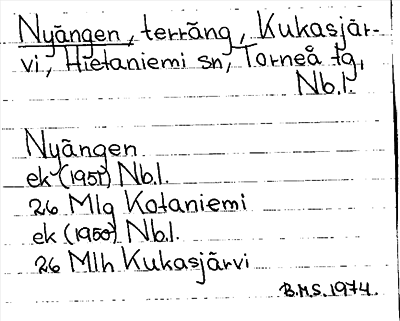 Nyängen, terräng, Kukasjär-
vi, Hietaniemi sn, Torneå tg,
Nb.l.
Nyängen
ek (1951) Nb.l.
26 Mlg Kotaniemi
ek (1950) Nb.l.
26 Mlh Kukasjärvi
B.M.S. 1974.